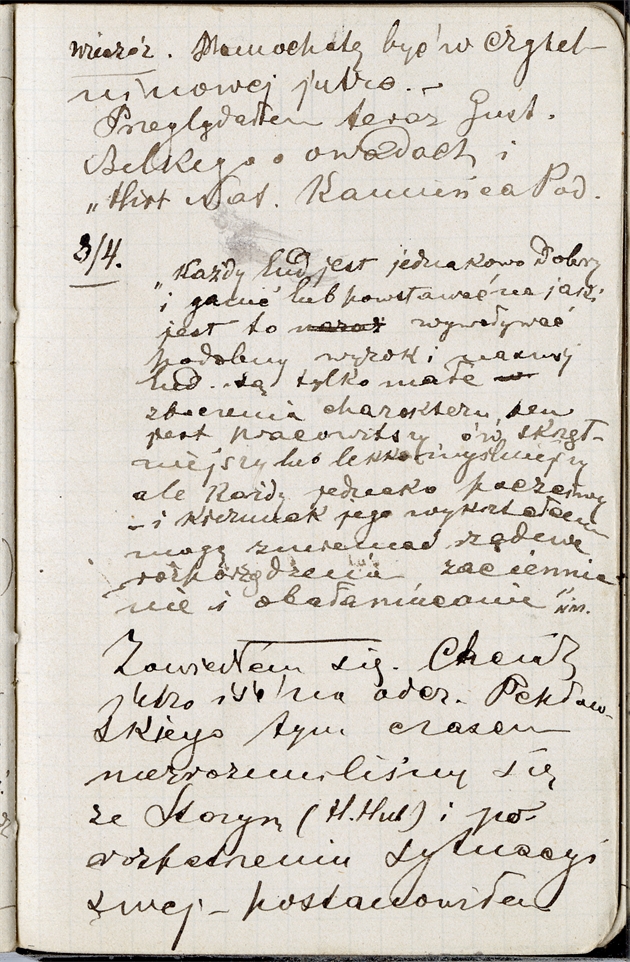 wieczór. Mam ochotę być w Czytel-
ni nowej jutro. –
Przeglądałem teraz Gust.
Belkego o owadach i
„Hist Nat. Kamieńca Pod.
3/4.
„Każdy lud jest jednakowo dobry
i ganić lub powstawać na jaki
jest to wywoływać
podobny wyrok i na swój
lud. Są tylko małe
zboczenia charakteru, ten
jest pracowitszy ów skrzęt-
niejszy lub lekkomyślniejszy
ale każdy jednako poczciwy
– i kierunek jego wykształceniu
mogą zmieniać rządowe
rozporządzenia zaciemnia-
nie i obałamucanie"
Zawiodłem się. Chciałem
jutro iść na odcz. Pekław-
skiego tym czasem
nie zrozumieliśmy się
ze Starym (H. Hub) i po
rozpatrzeniu sytuacyi
swej – postanowiłem